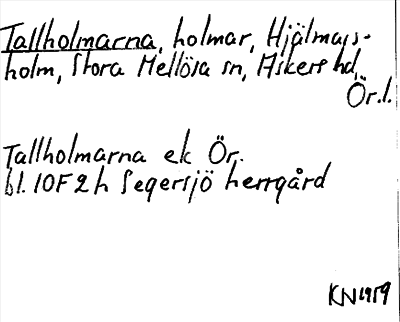 Tallholmarna, holmar, Hjälmars-
holm, Stora Mellösa sn, Askers hd,
Ör.l.
Tallholmarna ek Ör.
bl. 10F 2h Segersjö herrgård
KN 1959